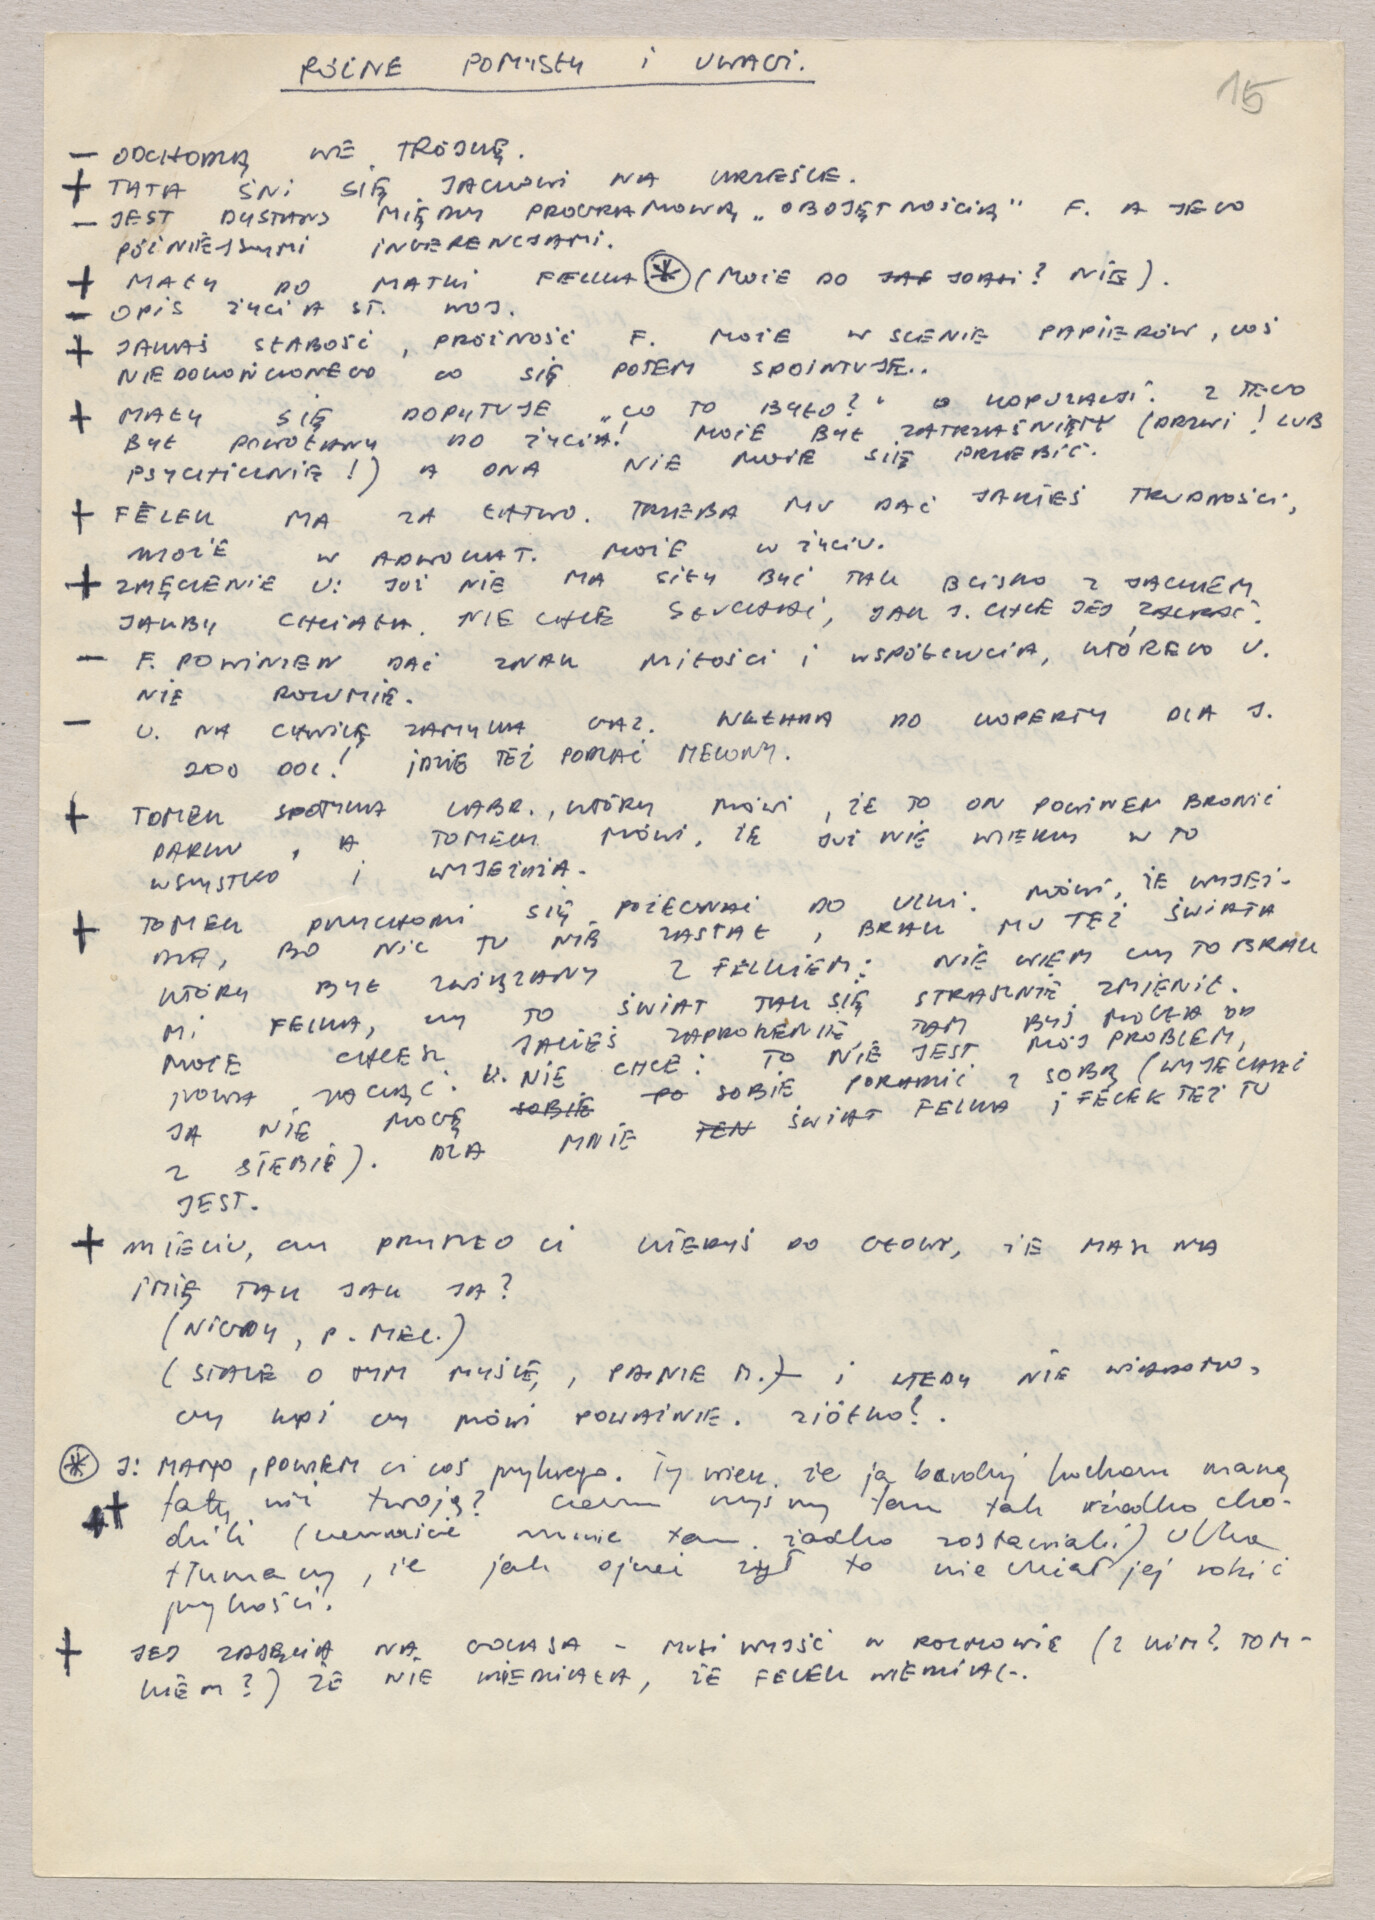 RÓŻNE POMYSŁY I UWAGI.
15
– ODCHODZĄ WE TRÓJKĘ.
+ TATA ŚNI SIĘ JACKOWI NA KRZEŚLE.
– JEST DYSTANS MIĘDZY PROGRAMOWĄ „OBOJĘTNOŚCIĄ" F. A JEGO
PÓŹNIEJSZYMI INGERENCJAMI.
+ MAŁY DO MATKI FELKA * (MOŻE DO JOASI? NIE).
– OPIS ŻYCIA ST. WOJ.
+ JAKAŚ SŁABOŚĆ, PRÓŻNOŚĆ F. MOŻE W SCENIE PAPIERÓW, COŚ
NIEDOKOŃCZONEGO CO SIĘ POTEM SPOINTUJE..
+ MAŁY SIĘ DOPYTUJE „CO TO BYŁO?" O KOPULACJI. Z TEGO
BYŁ POWOŁANY DO ŻYCIA! MOŻE BYŁ ZATRZAŚNIĘTY (DRZWI! LUB
PSYCHICZNIE!) A ONA NIE MOŻE SIĘ PRZEBIĆ.
+ FELEK MA ZA ŁATWO. TRZEBA MU DAĆ JAKIEŚ TRUDNOŚCI,
MOŻE W ADWOKAT. MOŻE W ŻYCIU.
+ ZMĘCZENIE U: JUŻ NIE MA SIŁY BYĆ TAK BLISKO Z JACKIEM
JAKBY CHCIAŁA. NIE CHCE SŁUCHAĆ, JAK J. CHCE JEJ ZAGRAĆ.
– F. POWINIEN DAĆ ZNAK MIŁOŚCI I WSPÓŁCZUCIA, KTÓREGO U.
NIE ROZUMIE.
– U. NA CHWILĘ ZAMYKA GAZ. WKŁADA DO KOPERTY DLA J.
200 DOL! IDZIE TEŻ PODLAĆ MELONY.
+ TOMEK SPOTYKA LABR., KTÓRY MÓWI, ŻE TO ON POWINIEN BRONIĆ
DARKU, A TOMEK MÓWI, ŻE JUŻ NIE WIERZY W TO
WSZYSTKO I WYJEŻDŻA.
+ TOMEK PRZYCHODZI SIĘ POŻEGNAĆ DO ULKI. MÓWI, ŻE WYJEŻ-
DŻA, BO NIC TU NIE ZASTAŁ, BRAK MU TEŻ ŚWIATA
KTÓRY BYŁ ZWIĄZANY Z FELKIEM: NIE WIEM CZY TO BRAK
MI FELKA, CZY TO ŚWIAT TAK SIĘ STRASZNIE ZMIENIŁ.
MOŻE CHCESZ JAKIEŚ ZAPROSZENIE TAM BYŚ MOGŁA OD
NOWA ZACZĄĆ. U. NIE CHCE: TO NIE JEST MÓJ PROBLEM,
JA NIE MOGĘ SOBIE PO SOBIE PORADZIĆ Z SOBĄ (WYJECHAĆ
Z SIEBIE). DLA MNIE TEN ŚWIAT FELKA I FELEK TEŻ TU
JEST.
+ MIECIU, CZY PRZYSZŁO CI KIEDYŚ DO GŁOWY, ŻE MASZ NA
IMIĘ TAK JAK JA?
(NIGDY, P. MEC.)
(STALE O TYM MYŚLĘ, PANIE M.) – I WTEDY NIE WIADOMO,
CZY KPI CZY MÓWI POWAŻNIE. ZIÓŁKO?.
* J: MAMO, POWIEM CI COŚ przykrego. Ty wiesz że ja bardziej kocham mamę
+ taty niż twoją? Czemu myśmy tam tak rzadko cho-
dzili (czemuście mnie tam rzadko zostawiali) Ulka
tłumaczy, że jak ojciec żył to nie chciał jej robić
przykrości.
+ JEJ ZDJĘCIA NA GOLASA – MUSI WYJŚĆ W ROZMOWIE (Z KIM? TOM-
KIEM?) ŻE NIE WIEDZIAŁA, ŻE FELEK WIEDZIAŁ.